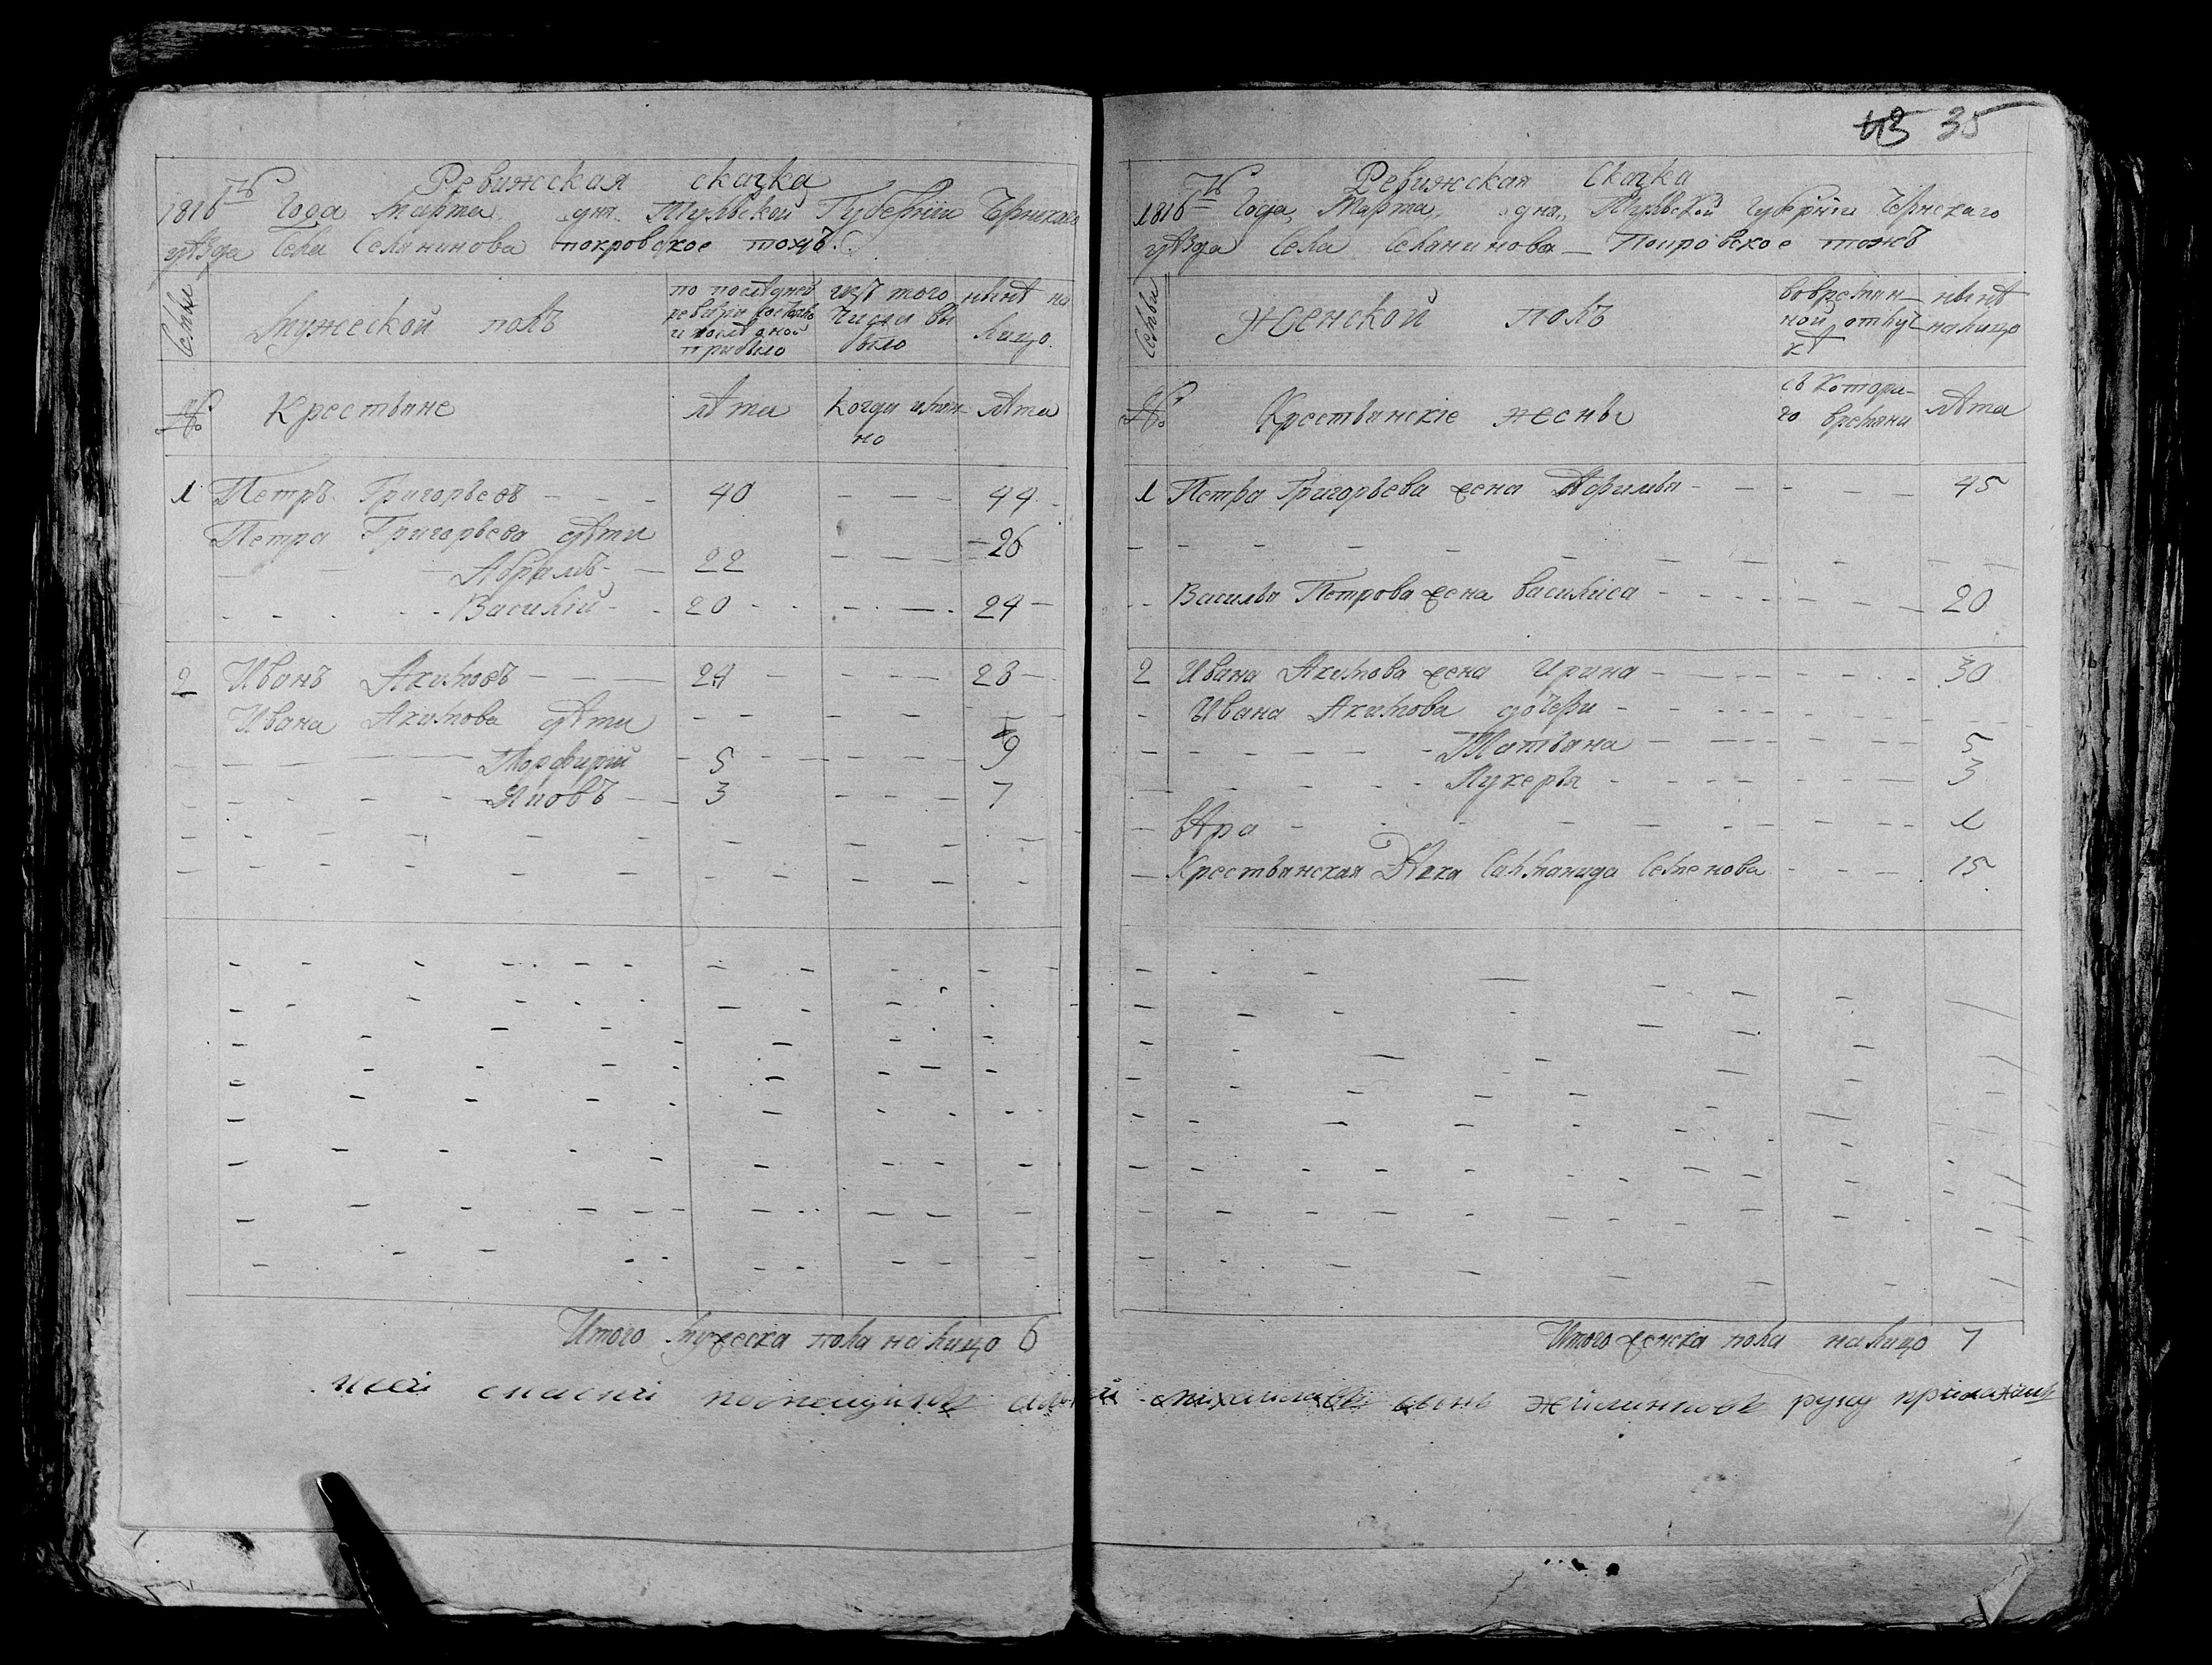 Ревижская сказка
1816го Года Марта дня Тульской Губерніи Чернскаго
уѣзда Села Селянинова покровское тожъ
Семьи
Мужеской полъ
по послѣдней
ревизіи состояло
и послѣ оной
прибыло
изъ того
числа вы
было
нынѣ на
лицо.
№
Крестьяне
лѣта
Когда имян
но
лѣта
1 Петръ Григорьевъ - - - 40 - - - 44
Петра Григорьева дѣти
Абрамъ - 22 - - - 26
Василій - 20 - - - 24
2 Иванъ Акимовъ - - - 24 - - - 28
Ивана Акимова дѣти
Порфирій 5 - - - 9
Яковъ 3 - - - 7
Итого мужеска пола на лицо 6
43 35
Ревижская Скаска
1816го Года Марта дня Тульской губерніи Чернскаго
уѣзда Села Селанинова Покровское тожъ
Семьи
Женской полъ
вовремян
ной отлуч
кѣ
нынѣ
налицо
№
Крестьянскіе жены
съ котора-
го времяни
лѣта
1 Петра Григорьева жена - - - 45
Василья Петрова жена василиса - - - 20
2 Ивана Акимова жена Ирина - - - 30
Ивана Акимова дочери - - -
Татьяна - - - 5
Лукерья - - - 3
вѣра - - - 1
Крестьянская Дѣвка Салманида Семенова - - - 15
Итого женска пола налицо 7
помещикъ михайловъ сынъ руку приложилъ